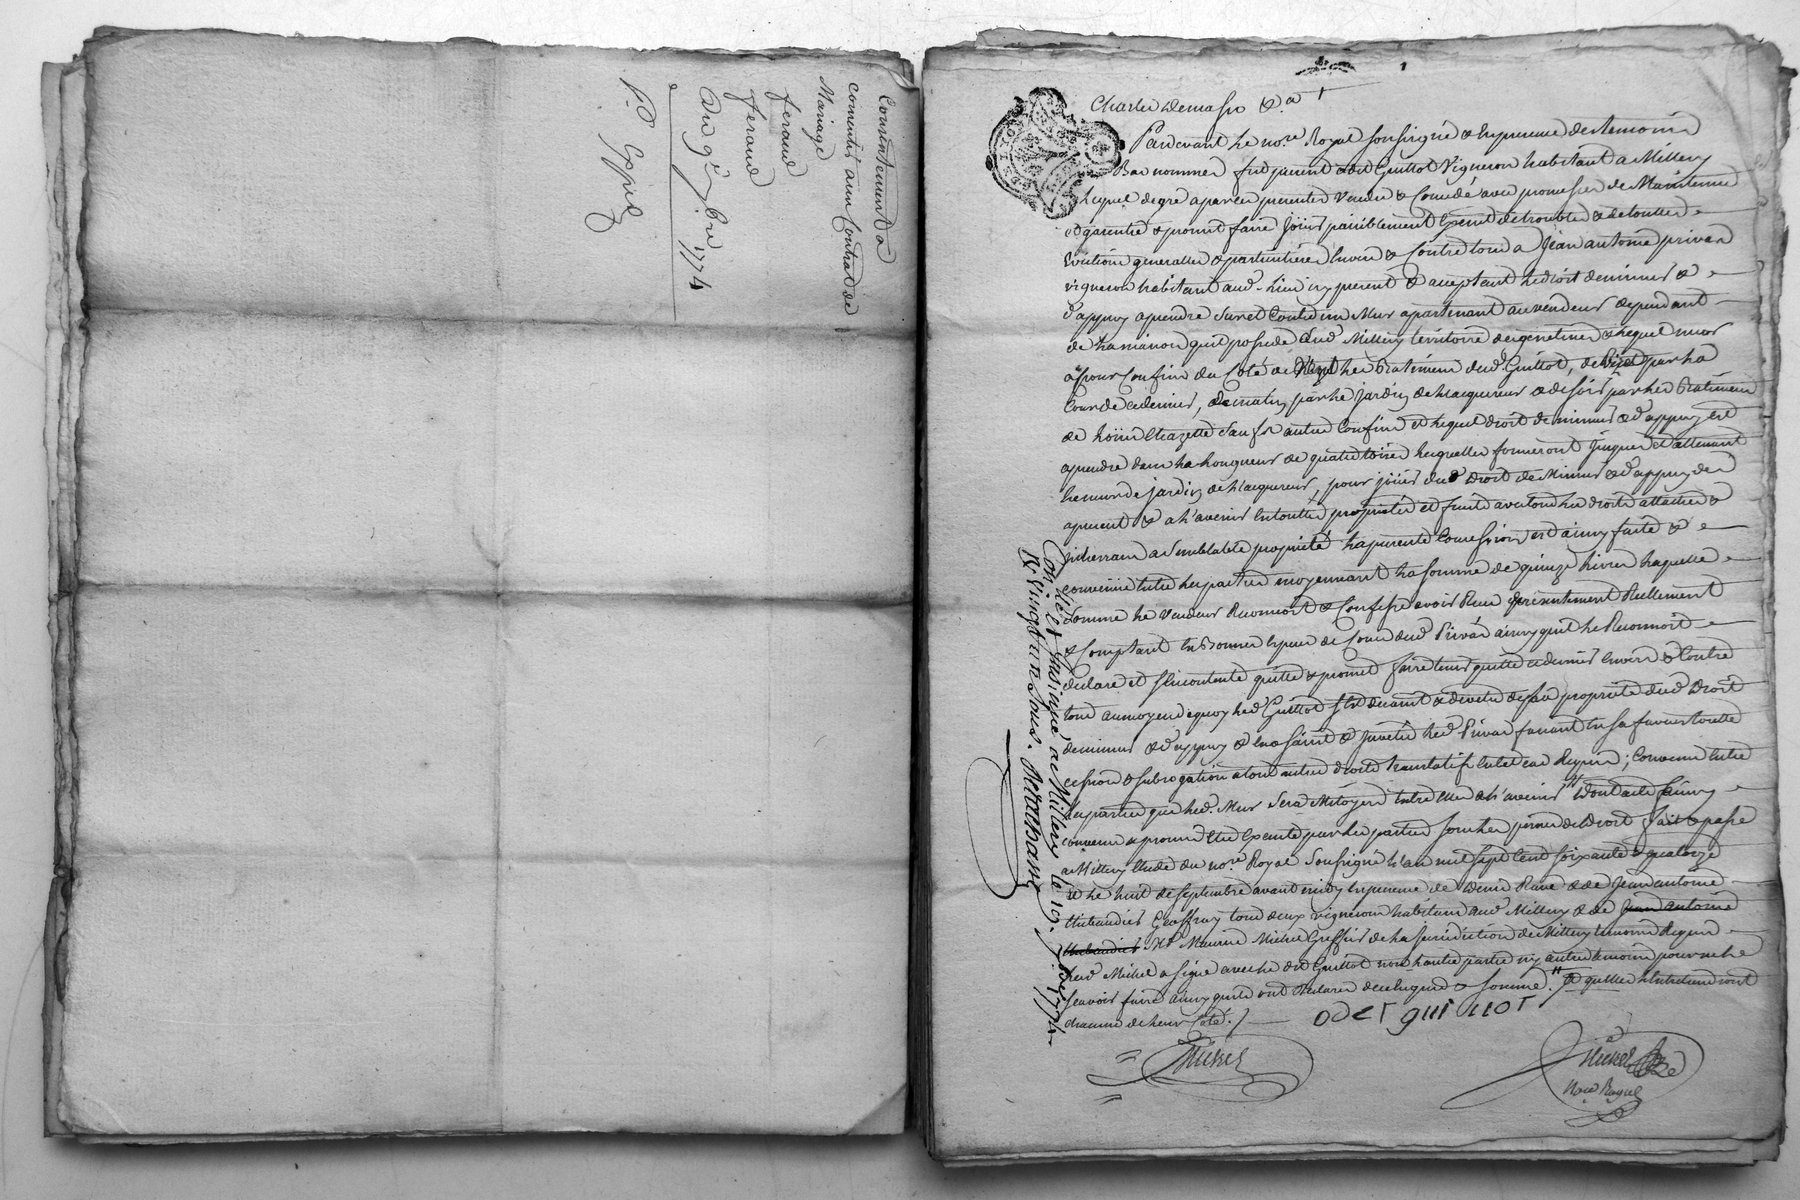 Consentement a
Mariage
contenus au Contrat de
feraud
feraud
Du 9e 7bre 1774
Charles Demasso &a
Pardevant Le nore Royal soussigné & en presence des temoins
Bas nommes fut present odet Guittot Vigneron habitant a Millery
Lequel de gré a par ces presentes Vendu & Cometé avec promesses de Maintenue
et garentie & promet faire Jouir paisiblement Exemt de trouble & de touttes
Evictions generalles & particulieres Envers & Contre tous a Jean antoine privas
vigneron habitant aud. Lieu icy present & acceptant Le droit de mineur &
d'appuy a prendre sur et Contre un Mur apartenant au vendeur dependant
de La maison quil possede aud. Millery territoire de & Lequel mur
a pour Confins du Coté de Les Batiment dud. Guittot, de par La
Cour de ce dernier, de matin par Le jardin de L'acquereur & de soir par Les Batiment
de Chazette sauf autres Confins et Lequel droit de mineur & d'appuy est
a prendre dans La Longueur de quatre toises Lesquelles formeront Jusques et attenant
Le mur de jardin de L'acquereur, pour jouir dud. Droit de Mineur & d'appuy des
apresent & a L'avenir En toutte proprieté et fruits avec tous Les droits attachés &
inherans a semblable proprieté La presente Comession est ainsy faite &
convenüe Entre Les parties moyennant La somme de quinze Livres Laquelle
somme Le Vendeur Reconnoit & Confesse avoir Reçue presentement Reellement
& Comptant En Bonnes Especes de Cours dud. Privas ainsy quil Le Reconnoit
declare et s'en contente quitte & promet faire tenir quitte ce dernier Envers & Contre
tous au moyen de quoy led. Guittot s'est demit & devetu de sa proprieté dud. Droit
de mineur & d'appuy & En a saisit & Invetu led. Privas faisant En sa faveur toutte
cession & subrogation a tous autres droits translatifs Entel cas Requis; Convenu Entre
Les parties que led. Mur sera Mitoyen Entre Eux a L'avenir " Dont acte ainsy
convenu & promis Etre Executé par Les parties sous Les peines de Droit fait & passé
a Millery Etude du nore Royal Soussigné L'an mil sept Cent soixante & quatorze
et Le huit de septembre avant midy En presence de Denis Rave & de Jean antoine
Thibaudier Geoffray tous deux vignerons habitans aud. Millery & de Jean antoine
Thibaudier Mr Maurice Michel Greffier de La Jurisdiction de Millery temoins Requis
Led. Michel a signé avec Led. Guittot non Lautre partie ny autres temoins pour ne Le
scavoir faire ainsy quils ont declaré de ce Enquis & sommé. " & quelles Entretiendront
chacune de Leur Coté. /
ODET GUITTOT
Michel
Michel
Nore Royal
Controllé et insinué a Millery le 19. 7bre 1774
R. vingt un sous.